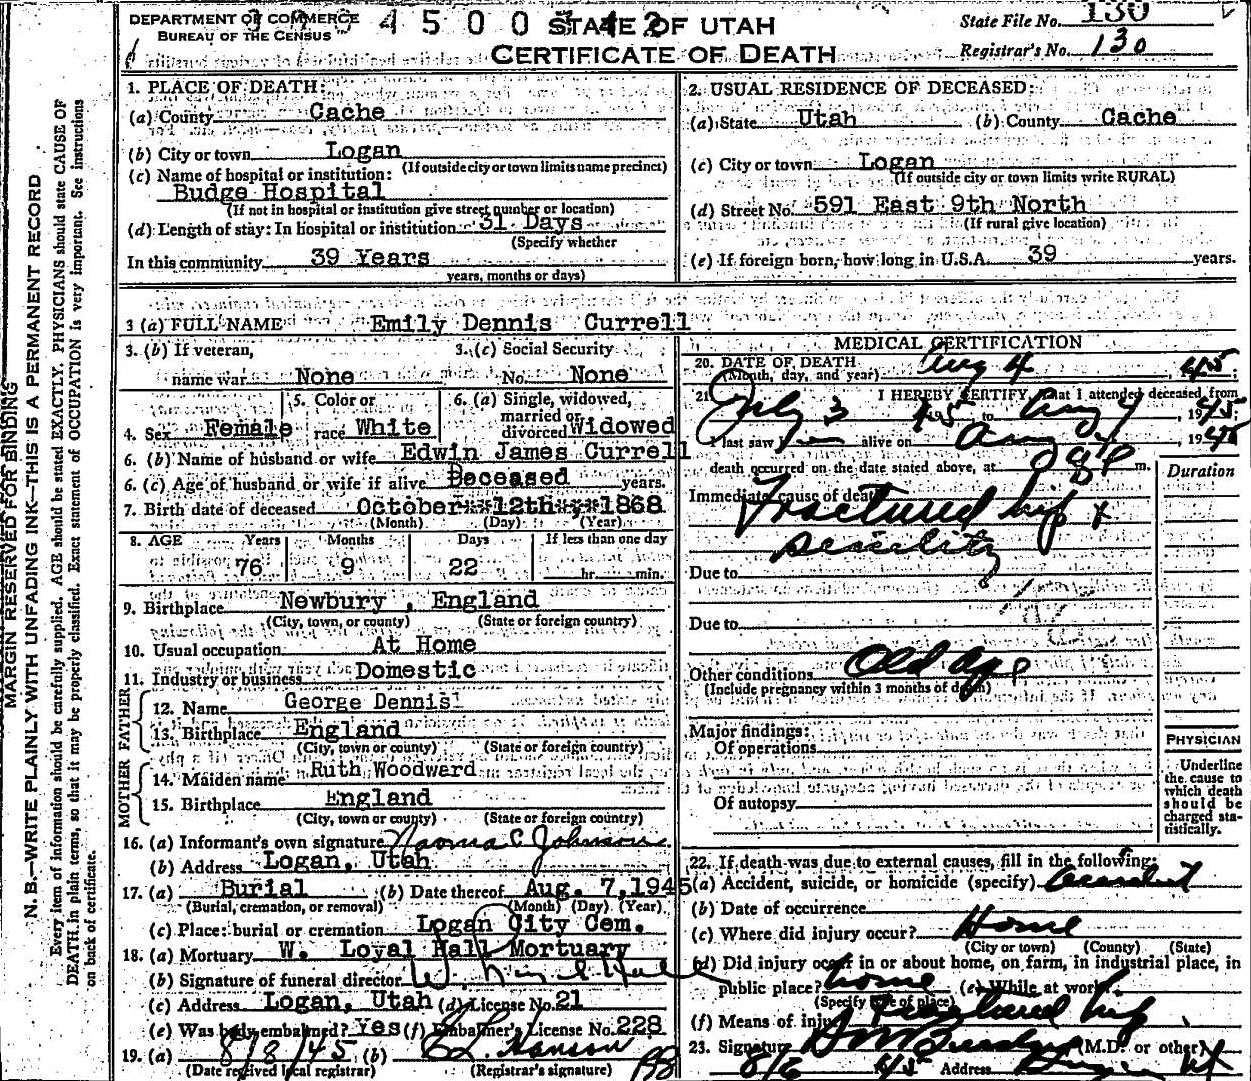 DEPARTMENT OF COMMERCE
BUREAU OF THE CENSUS
STATE OF UTAH
CERTIFICATE OF DEATH
State File No. 130
Registrar's No. 130
MARGIN RESERVED FOR BINDING
N. B.—WRITE PLAINLY WITH UNFADING INK—THIS IS A PERMANENT RECORD
Every item of information should be carefully supplied. AGE should be stated EXACTLY. PHYSICIANS should state CAUSE OF
DEATH in plain terms, so that it may be properly classified. Exact statement of OCCUPATION is very important. See instructions
on back of certificate.
1. PLACE OF DEATH:
(a) County Cache
(b) City or town Logan
(If outside city or town limits name precinct)
(c) Name of hospital or institution:
Budge Hospital
(If not in hospital or institution give street number or location)
(d) Length of stay: In hospital or institution 31 Days
(Specify whether
In this community 39 Years
years, months or days)
2. USUAL RESIDENCE OF DECEASED:
(a) State Utah (b) County Cache
(c) City or town Logan
(If outside city or town limits write RURAL)
(d) Street No. 591 East 9th North
(If rural give location)
(e) If foreign born, how long in U.S.A. 39 years.
3 (a) FULL NAME Emily Dennis Currell
3. (b) If veteran,
name war None
3. (c) Social Security
No. None
4. Sex Female
5. Color or
race White
6. (a) Single, widowed,
married or
divorced Widowed
6. (b) Name of husband or wife Edwin James Currell
6. (c) Age of husband or wife if alive Deceased years.
7. Birth date of deceased October 12th 1868
(Month) (Day) (Year)
8. AGE Years Months Days If less than one day
76 9 22 hr. min.
9. Birthplace Newbury , England
(City, town, or county) (State or foreign country)
10. Usual occupation At Home
11. Industry or business Domestic
FATHER
12. Name George Dennis
13. Birthplace England
(City, town or county) (State or foreign country)
MOTHER
14. Maiden name Ruth Woodward
15. Birthplace England
(City, town or county) (State or foreign country)
16. (a) Informant's own signature Naoma C Johnson
(b) Address Logan, Utah
17. (a) Burial (b) Date thereof Aug. 7, 1945
(Burial, cremation, or removal) (Month) (Day) (Year)
(c) Place: burial or cremation Logan City Cem.
18. (a) Mortuary W. Loyal Hall Mortuary
(b) Signature of funeral director W. Loyal Hall
(c) Address Logan, Utah (d) License No. 21
(e) Was body embalmed? Yes (f) Embalmer's License No. 228
19. (a) 8/8/45 (b) Hanson
(Date received local registrar) (Registrar's signature)
MEDICAL CERTIFICATION
20. DATE OF DEATH Aug 4, 45;
(Month, day, and year)
21. I HEREBY CERTIFY, that I attended deceased from
July 3 45 to Aug 4, 1945;
I last saw him alive on Aug 4, 1945
death occurred on the date stated above, at 8 P m.
Duration
Immediate cause of death
Fractured hip &
senility
Due to
Due to
Other conditions Old age
(Include pregnancy within 3 months of death)
Major findings:
Of operations
Of autopsy
PHYSICIAN
Underline
the cause to
which death
should be
charged sta-
tistically.
22. If death was due to external causes, fill in the following:
(a) Accident, suicide, or homicide (specify) Accident
(b) Date of occurrence
(c) Where did injury occur? Home
(City or town) (County) (State)
(d) Did injury occur in or about home, on farm, in industrial place, in
public place? home (e) While at work
(Specify type of place)
(f) Means of injury Fractured hip
23. Signature (M.D. or other)
8/6 45 Address Logan Ut